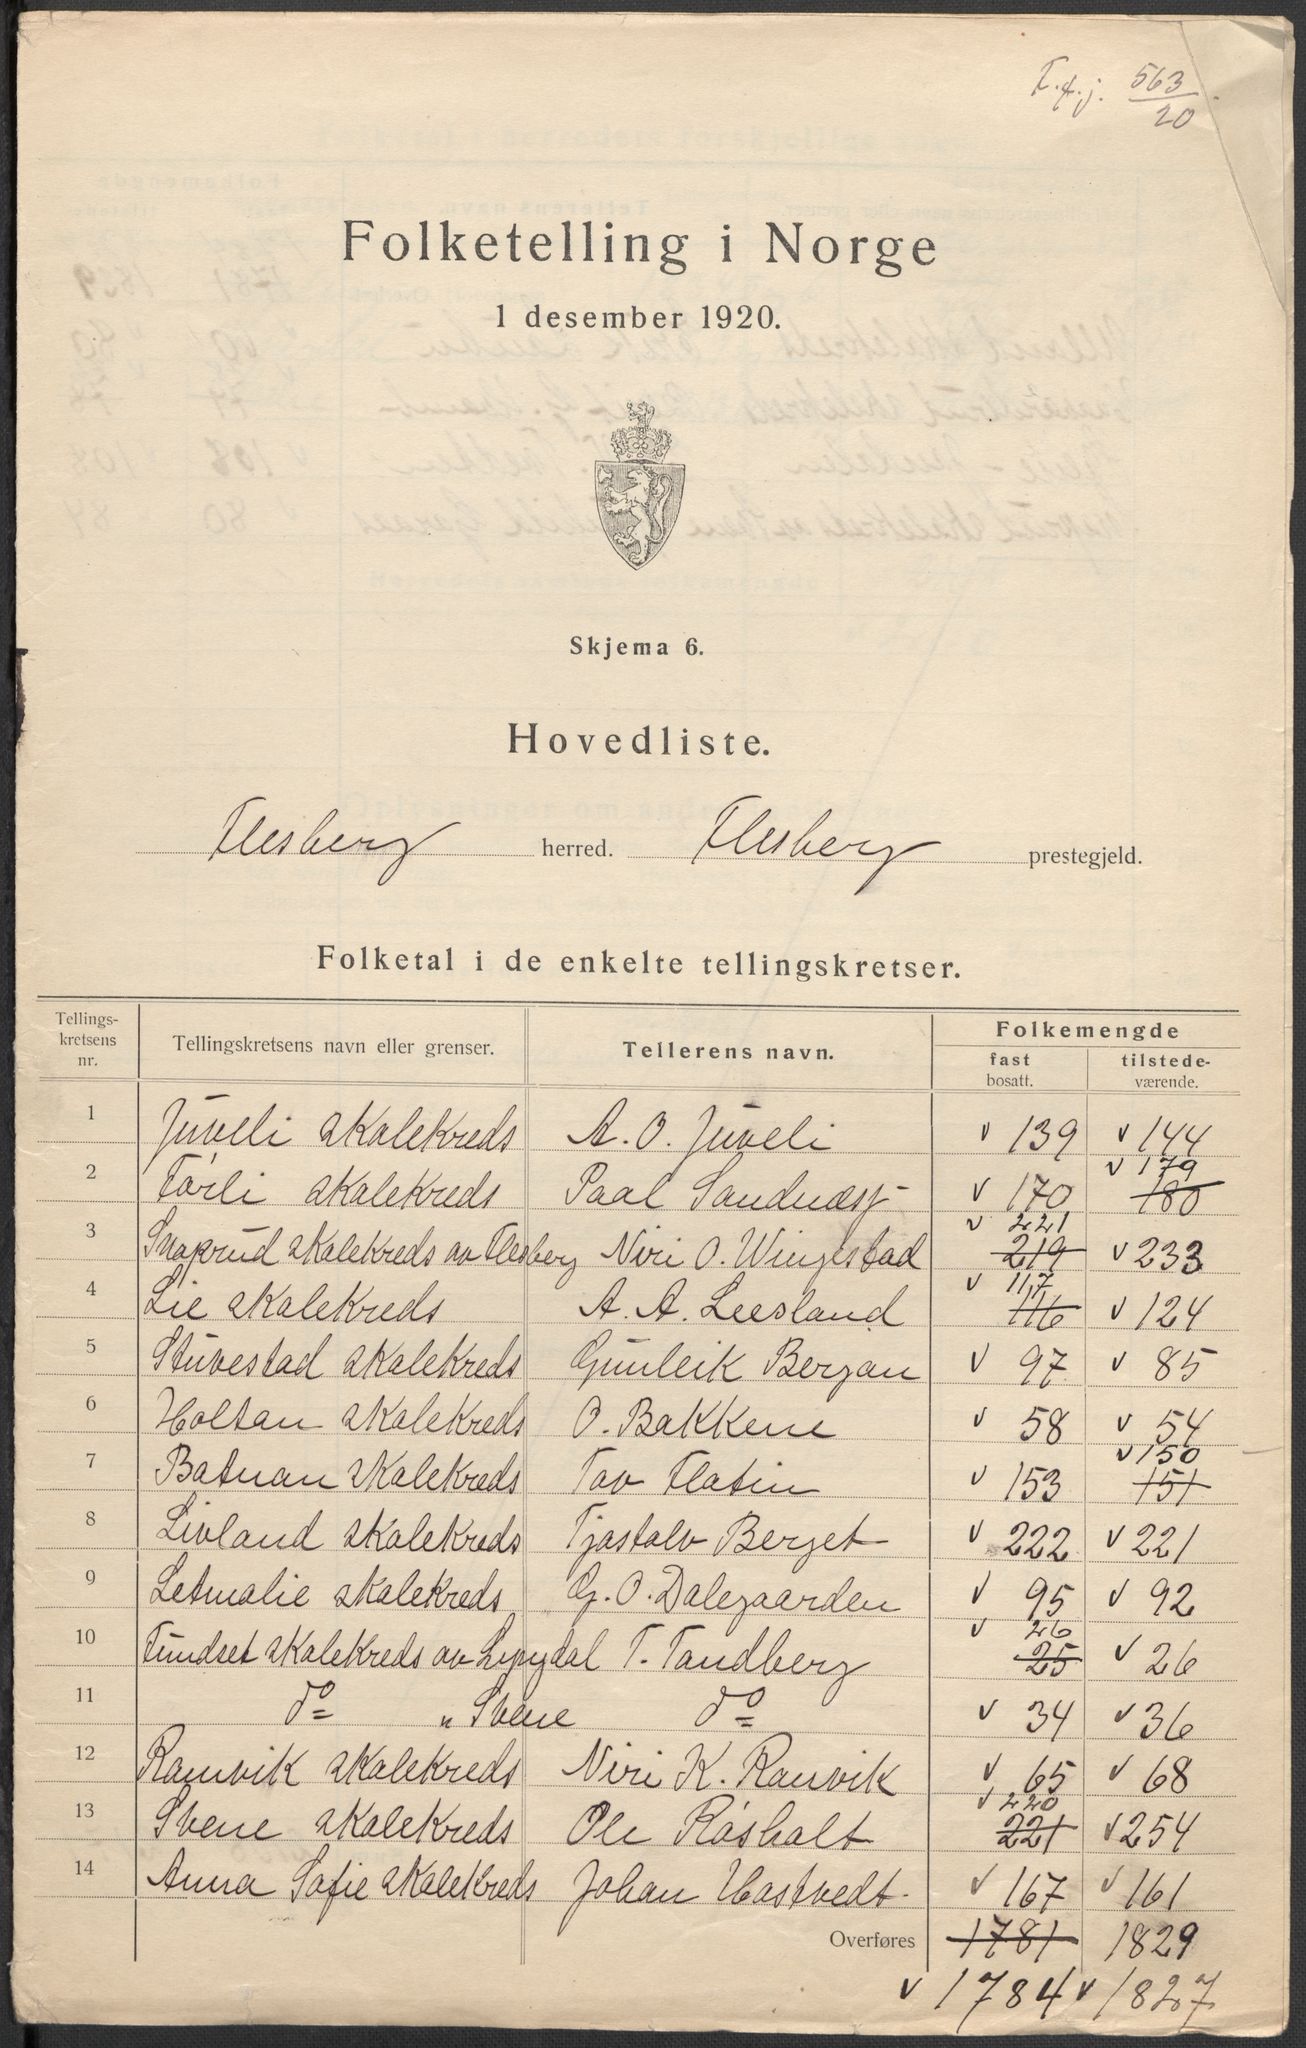 F.t.j. 563/20
Folketelling i Norge
1 desember 1920.
Skjema 6.
Hovedliste.
Flesberg herred. Flesberg prestegjeld.
Folketal i de enkelte tellingskretser.
Tellings-kretsens nr. Tellingskretsens navn eller grenser. Tellerens navn. Folkemengde
fast bosatt. tilstede-værende.
1 Juveli skolekreds A. O. Juveli v 139 v 144
2 Førli skolekreds Paal Sandnæs v 170 180 v 179
3 Skaprud skolekreds av Flesberg Niri O. Wingestad 219 v 221 v 233
4 Lie skolekreds A. A. Leesland 116 v 117 v 124
5 Stuvestad skolekreds Gunleik Bergan v 97 v 85
6 Holtan skolekreds O. Bakkene v 58 v 54
7 Batnan skolekreds Tov Flatin v 153 151 v 150
8 Livland skolekreds Tjøstolv Berget v 222 v 221
9 Letmolie skolekreds G. O. Dalegaarden v 95 v 92
10 Tundset skolekreds av Lyngdal T. Tandberg 25 v 26 v 26
11 do " Svene do v 34 v 36
12 Ramvik skolekreds Niri K. Ramvik v 65 v 68
13 Svene skolekreds Ole Råsholt 221 v 220 v 254
14 Anna Sofie skolekreds Johan Hostvedt v 167 v 161
Overføres 1781 1829
v 1784 v 1827